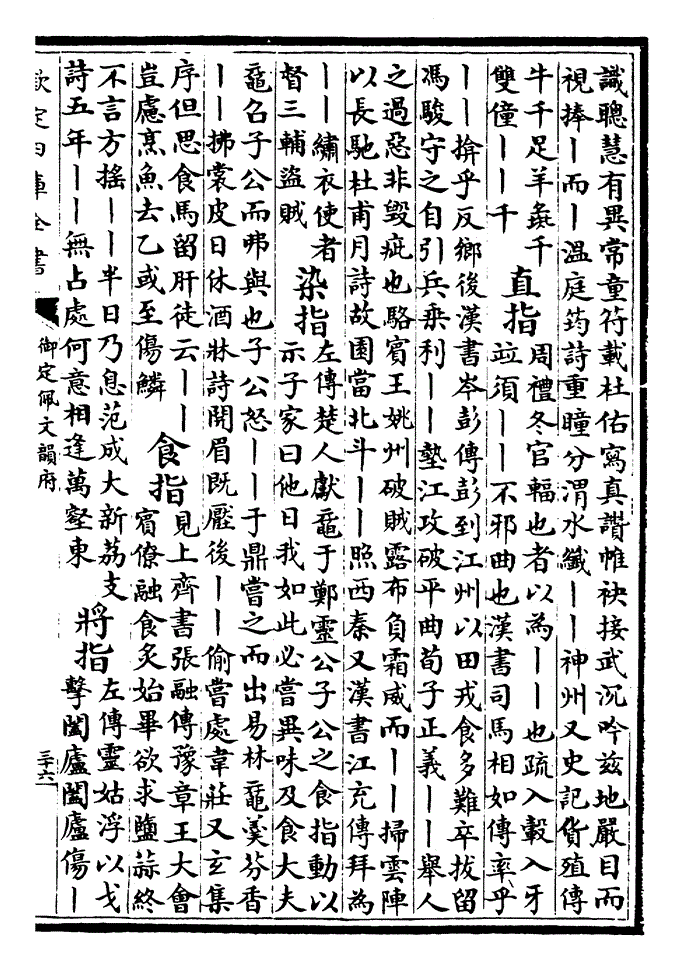 識聰慧有異常童符載杜佑寫真讚帷袂接武沉吟兹地嚴目而
視捧丨而丨溫庭筠詩重瞳分渭水纖丨丨神州又史記貨殖傳
牛千足羊彘千
雙僮丨丨千
直指
周禮冬官輻也者以為丨丨也疏入轂入牙
竝須丨丨不邪曲也漢書司馬相如傳率乎
丨丨揜乎反鄉後漢書岑彭傳彭到江州以田戎食多難卒拔留
馮駿守之自引兵乗利丨丨墊江攻破平曲荀子正義丨丨舉人
之過惡非毁疵也駱賓王姚州破賊露布負霜威而丨丨掃雲陣
以長馳杜甫月詩故園當北斗丨丨照西秦又漢書江充傳拜為
丨丨繡衣使者
督三輔盜賊
染指
左傳楚人獻黿于鄭靈公子公之食指動以
示子家曰他日我如此必嘗異味及食大夫
黿召子公而弗與也子公怒丨丨于鼎嘗之而出易林黿羮芬香
丨丨拂裳皮日休酒牀詩開眉既壓後丨丨偷嘗處韋莊又玄集
序但思食馬留肝徒云丨丨
豈慮烹魚去乙或至傷鱗
食指
見上齊書張融傳豫章王大會
賓僚融食炙始畢欲求鹽蒜終
不言方搖丨丨半日乃息范成大新荔支
詩五年丨丨無占處何意相逢萬壑東
將指
左傳靈姑浮以戈
擊闔廬闔廬傷丨
欽定四庫全書
御定佩文韻府
三十六